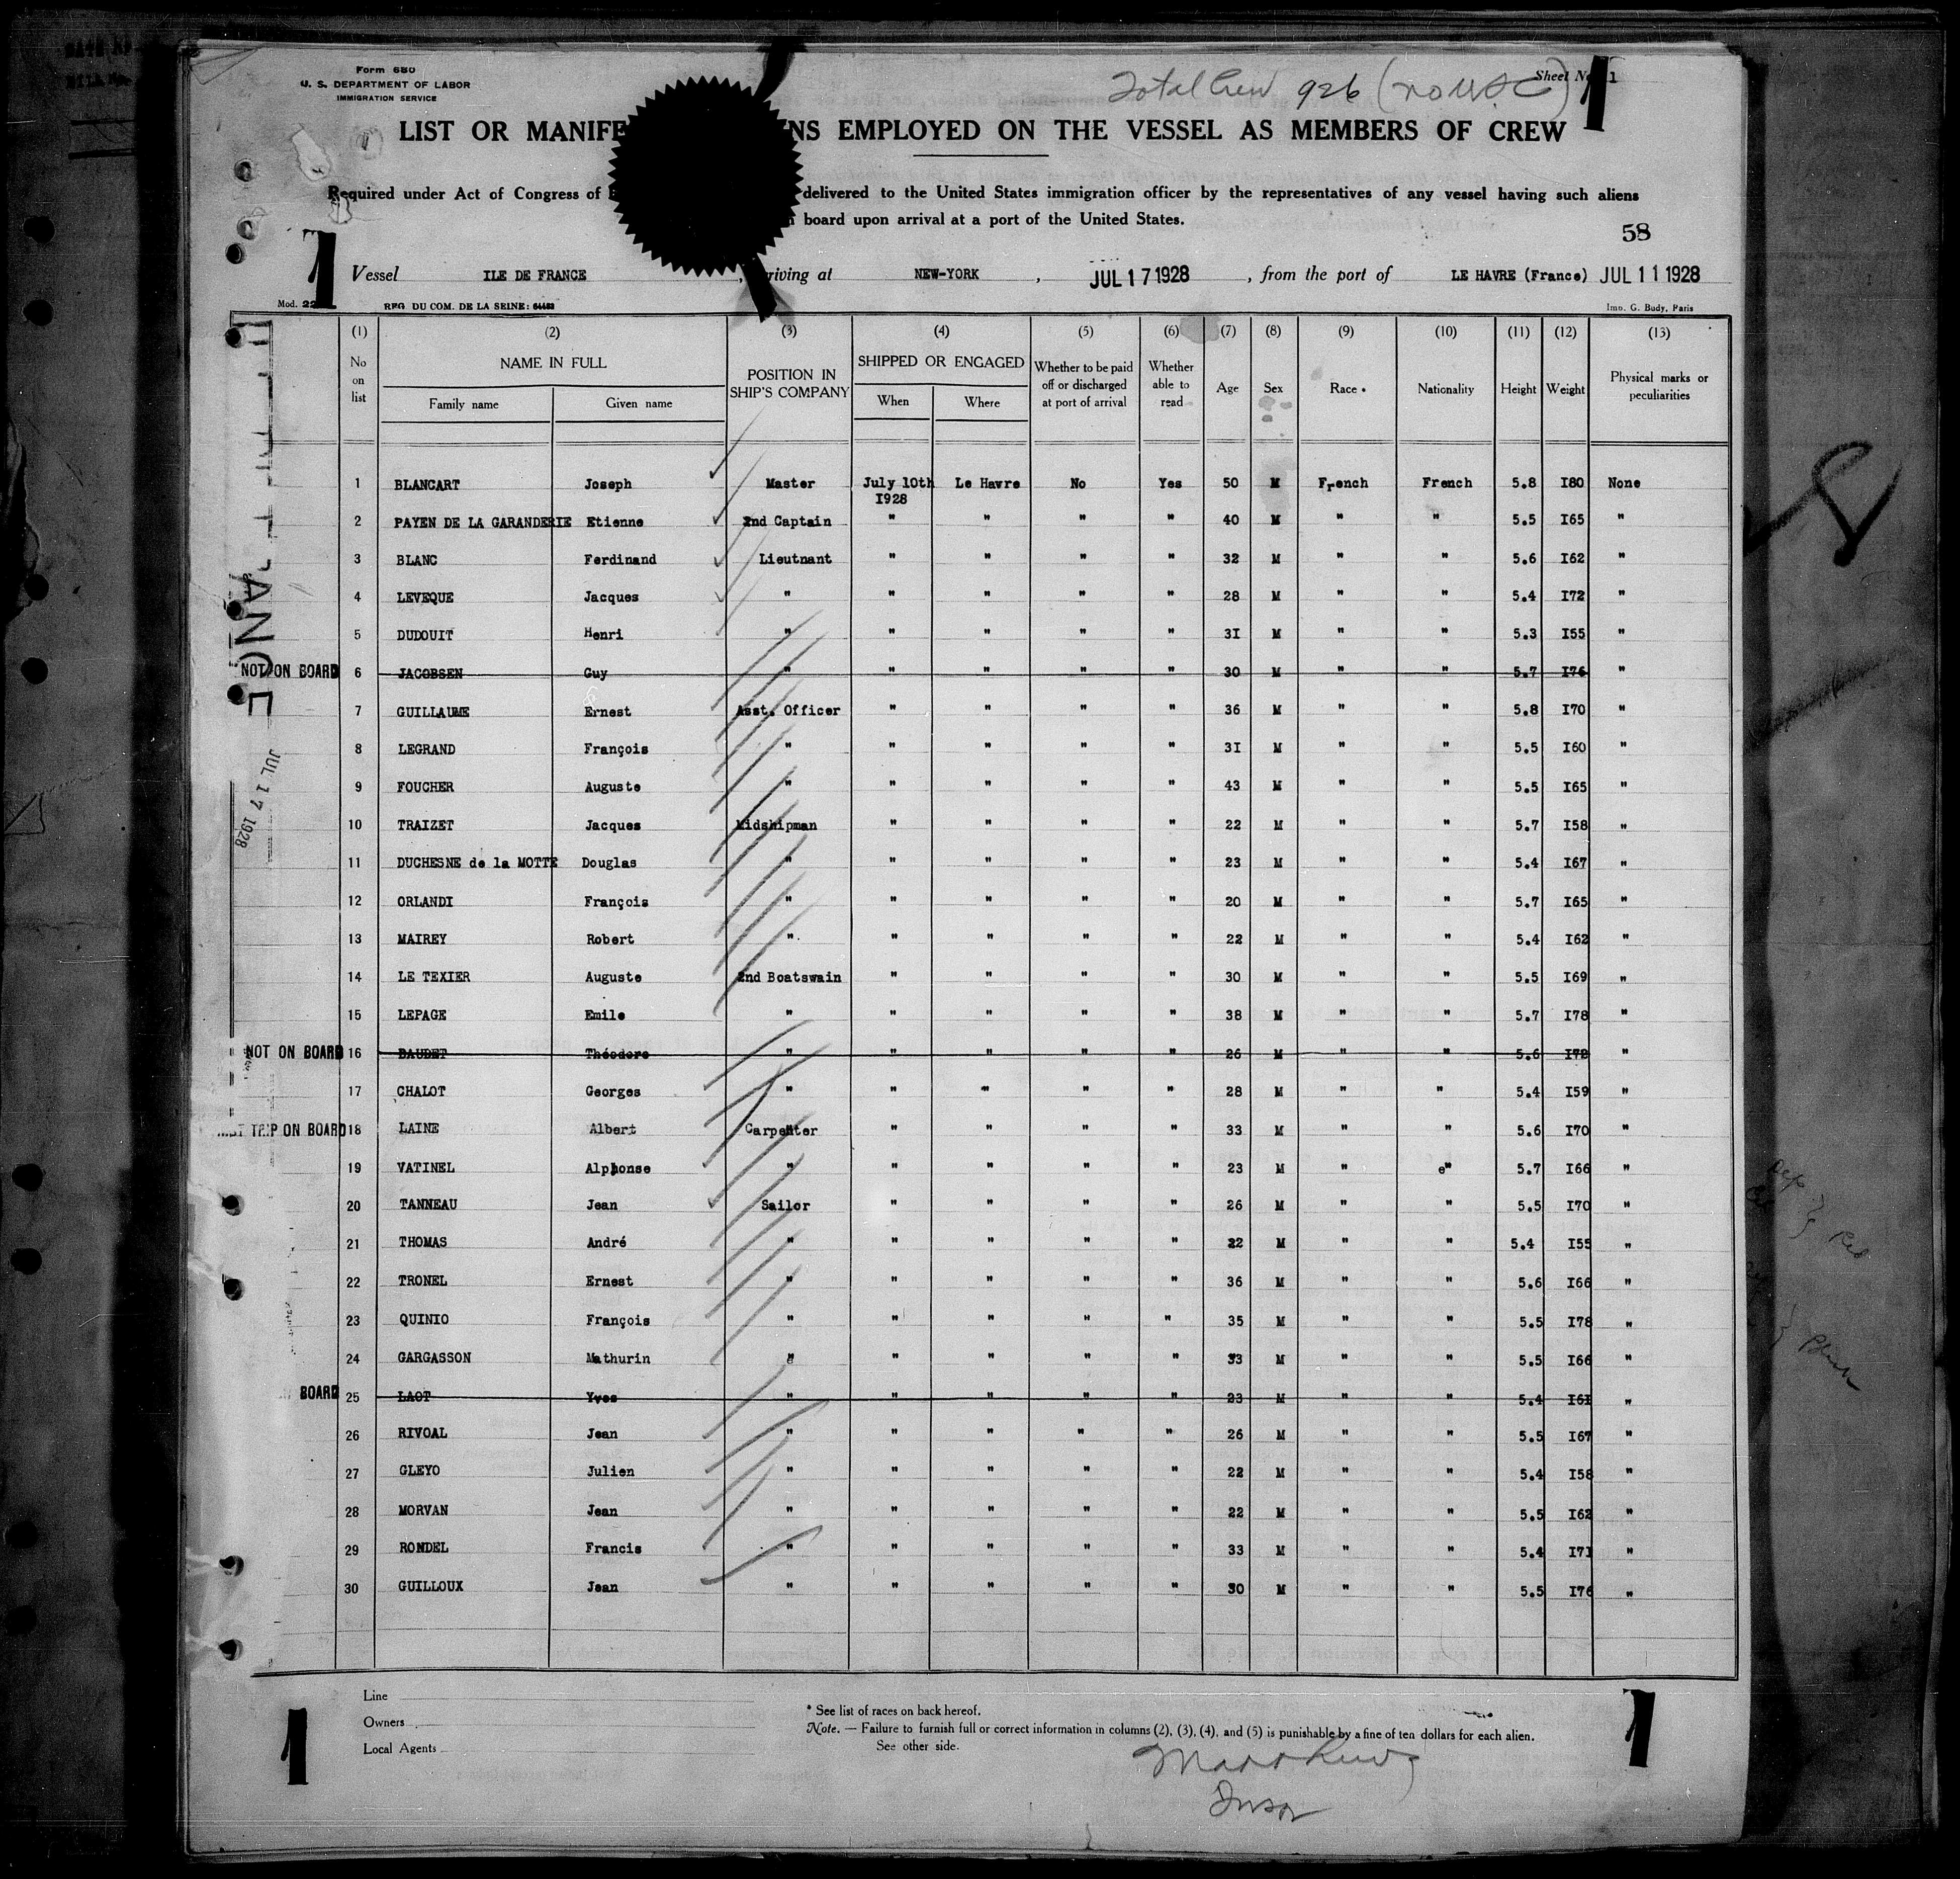 Form 680
U. S. DEPARTMENT OF LABOR
IMMIGRATION SERVICE
Total Crew 926 (no USC)
Sheet No 1
LIST OR MANIFE NS EMPLOYED ON THE VESSEL AS MEMBERS OF CREW
Required under Act of Congress of delivered to the United States immigration officer by the representatives of any vessel having such aliens
board upon arrival at a port of the United States.
58
Vessel ILE DE FRANCE , riving at NEW-YORK , JUL 17 1928 , from the port of LE HAVRE (France) JUL 11 1928
Mod. REG. DU COM. DE LA SEINE: Imp. G. Budy, Paris
(1) (2) (3) (4) (5) (6) (7) (8) (9) (10) (11) (12) (13)
No on list NAME IN FULL POSITION IN SHIP'S COMPANY SHIPPED OR ENGAGED Whether to be paid off or discharged at port of arrival Whether able to read Age Sex Race * Nationality Height Weight Physical marks or peculiarities
Family name Given name When Where
1 BLANCART Joseph Master July 10th I928 Le Havre No Yes 50 M French French 5.8 I80 None
2 PAYEN DE LA GARANDERIE Etienne 2nd Captain " " " " 40 M " " 5.5 I65 "
3 BLANC Ferdinand Lieutnant " " " " 32 M " " 5.6 I62 "
4 LEVEQUE Jacques " " " " " 28 M " " 5.4 I72 "
5 DUDOUIT Henri " " " " " 3I M " " 5.3 I55 "
NOT ON BOARD 6 JACOBSEN Guy " " " " " 30 M " " 5.7 I76 "
7 GUILLAUME Ernest Asst. Officer " " " " 36 M " " 5.8 I70 "
8 LEGRAND François " " " " " 3I M " " 5.5 I60 "
9 FOUCHER Auguste " " " " " 43 M " " 5.5 I65 "
10 TRAIZET Jacques Midshipman " " " " 22 M " " 5.7 I58 "
11 DUCHESNE de la MOTTE Douglas " " " " " 23 M " " 5.4 I67 "
12 ORLANDI François " " " " " 20 M " " 5.7 I65 "
13 MAIREY Robert " " " " " 22 M " " 5.4 I62 "
14 LE TEXIER Auguste 2nd Boatswain " " " " 30 M " " 5.5 I69 "
15 LEPAGE Emile " " " " " 38 M " " 5.7 I78 "
NOT ON BOARD 16 BAUDET Théodore " " " " " 26 M " " 5.6 I72 "
17 CHALOT Georges " " " " " 28 M " " 5.4 I59 "
TRIP ON BOARD 18 LAINE Albert Carpenter " " " " 33 M " " 5.6 I70 "
19 VATINEL Alphonse " " " " " 23 M " " 5.7 I66 "
20 TANNEAU Jean Sailor " " " " 26 M " " 5.5 I70 "
21 THOMAS André " " " " " 22 M " " 5.4 I55 "
22 TRONEL Ernest " " " " " 36 M " " 5.6 I66 "
23 QUINIO François " " " " " 35 M " " 5.5 I78 "
24 GARGASSON Mathurin " " " " " 33 M " " 5.5 I66 "
BOARD 25 LAOT Yves " " " " " 23 M " " 5.4 I6I "
26 RIVOAL Jean " " " " " 26 M " " 5.5 I67 "
27 GLEYO Julien " " " " " 22 M " " 5.4 I58 "
28 MORVAN Jean " " " " " 22 M " " 5.5 I62 "
29 RONDEL Francis " " " " " 33 M " " 5.4 I71 "
30 GUILLOUX Jean " " " " " 30 M " " 5.5 I76 "
JUL 17 1928
Line
Owners
Local Agents
* See list of races on back hereof.
Note. — Failure to furnish full or correct information in columns (2), (3), (4), and (5) is punishable by a fine of ten dollars for each alien.
See other side.
Matthews
1
1